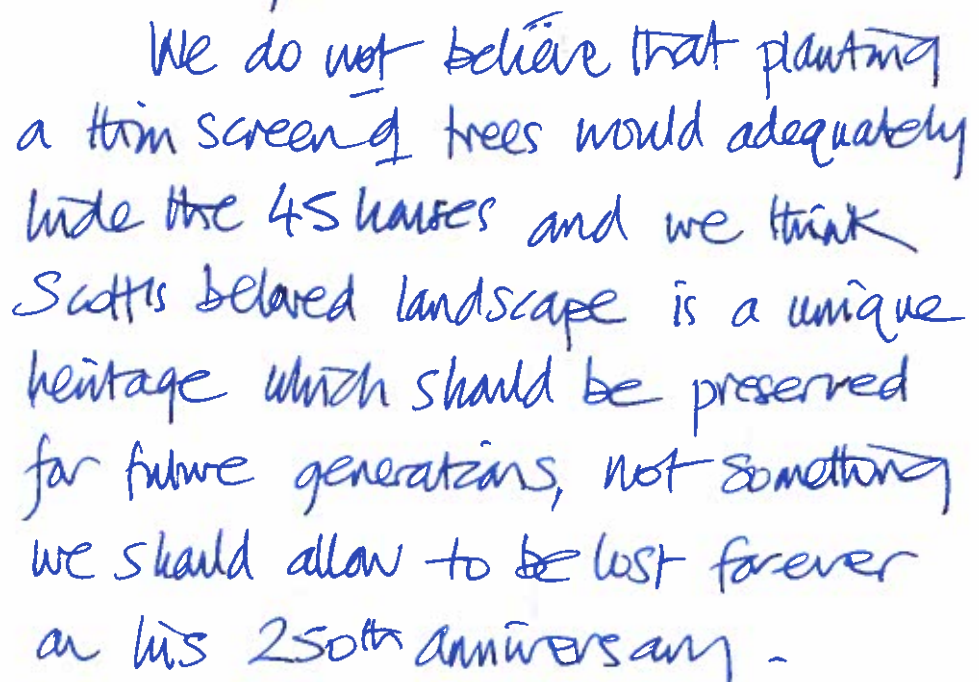 We do not believe that planting
a thin screen of trees would adequately
hide the 45 houses and we think
Scott's beloved landscape is a unique
heritage which should be preserved
for future generations, not something
we should allow to be lost forever
on his 250th anniversary.